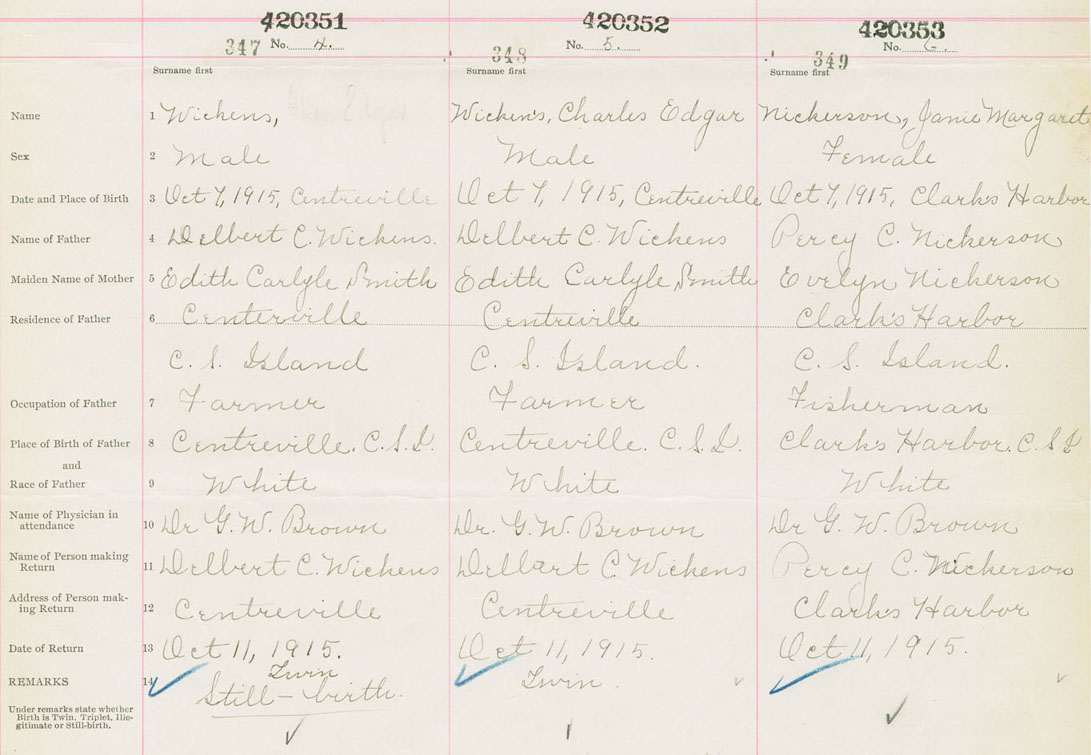 420351 420352 420353
347 No. 4. 348 No. 5. 349 No. 6.
Surname first Surname first Surname first
Name 1 Wickens, Wickens, Charles Edgar Nickerson, Janie Margaret
Sex 2 Male Male Female
Date and Place of Birth 3 Oct 7, 1915, Centreville Oct 7, 1915, Centreville Oct 7, 1915, Clark's Harbor
Name of Father 4 Delbert C. Wickens. Delbert C. Wickens Percy C. Nickerson
Maiden Name of Mother 5 Edith Carlyle Smith Edith Carlyle Smith Evelyn Nickerson
Residence of Father 6 Centerville Centreville Clark's Harbor
C. S. Island C. S. Island. C. S. Island.
Occupation of Father 7 Farmer Farmer Fisherman
Place of Birth of Father 8 Centreville. C.S.I. Centreville. C.S.I. Clark's Harbor. C.S.I
and
Race of Father 9 White White White
Name of Physician in
attendance 10 Dr G. W. Brown Dr. G. W. Brown Dr G. W. Brown
Name of Person making
Return 11 Delbert C. Wickens Delbert C. Wickens Percy C. Nickerson
Address of Person mak-
ing Return 12 Centreville Centreville Clark's Harbor
Date of Return 13 Oct 11, 1915. Oct 11, 1915. Oct 11, 1915.
REMARKS 14 Twin Twin.
Still-birth.
Under remarks state whether
Birth is Twin, Triplet, Ille-
gitimate or Still-birth.